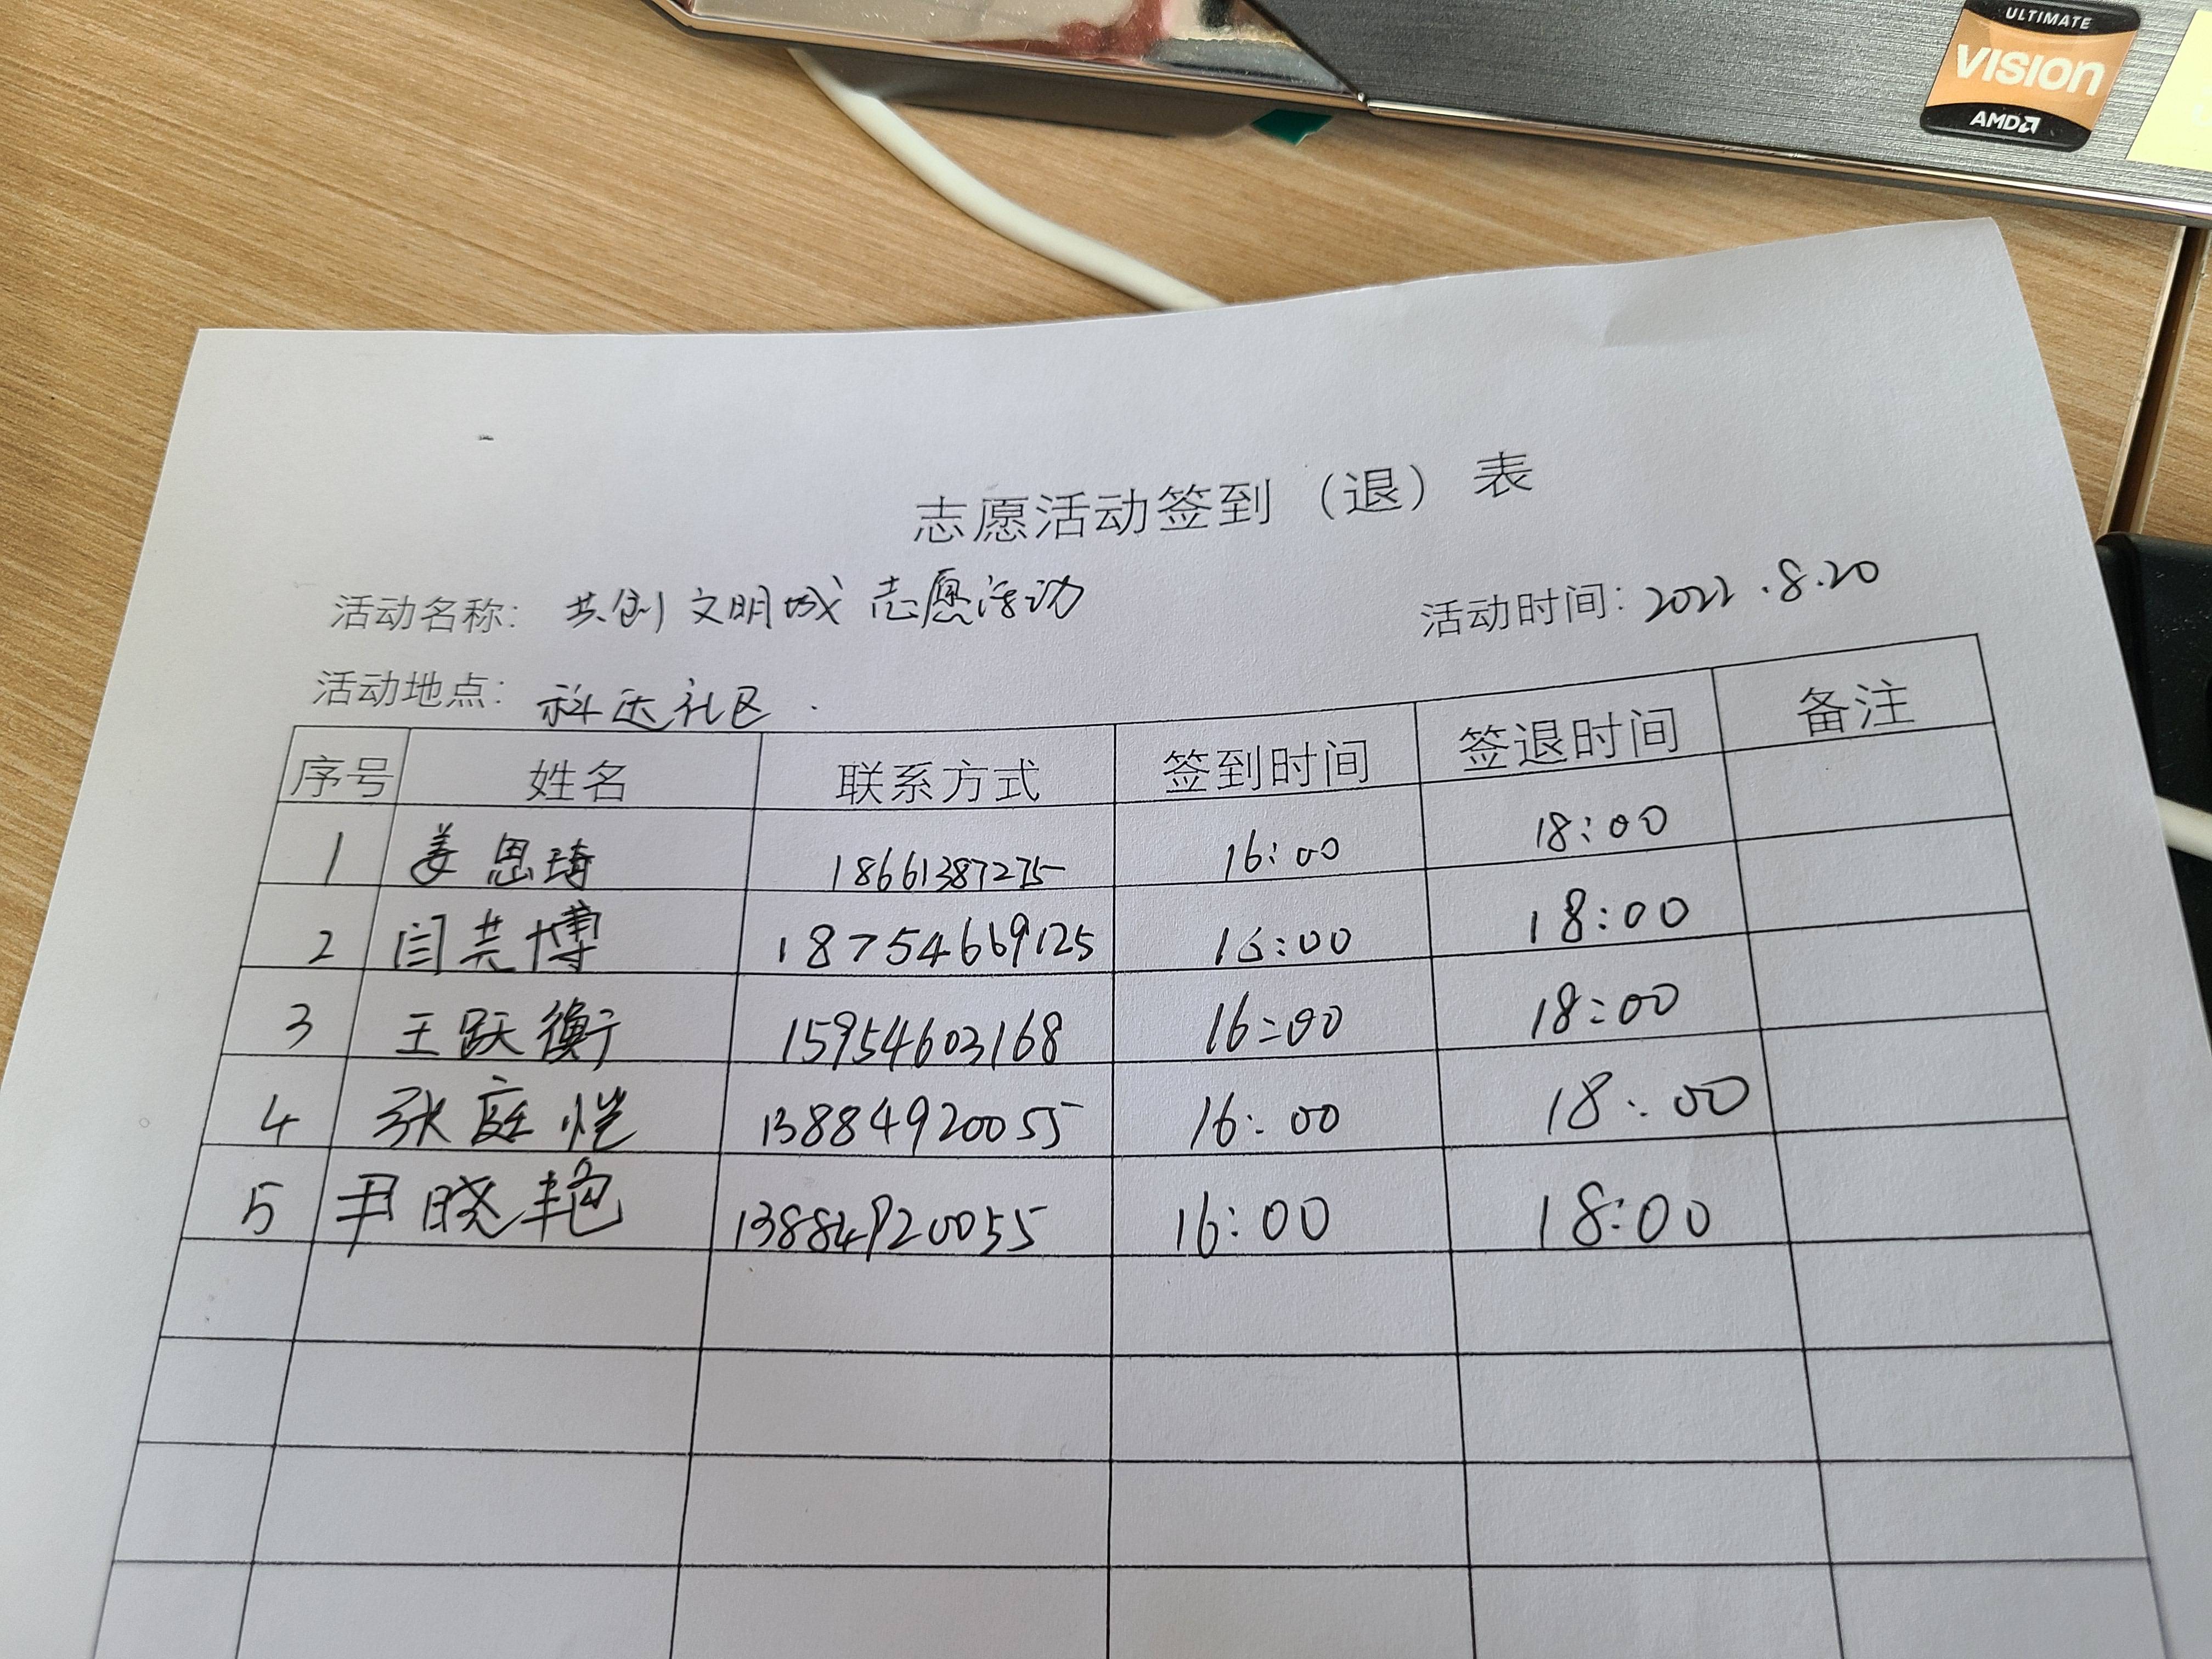 ULTIMATE
VISION
AMD
志愿活动签到（退）表
活动名称：共创文明城志愿活动 活动时间：2022.8.20
活动地点：科达社区.
序号 姓名 联系方式 签到时间 签退时间 备注
1 姜思琦 18661387275 16:00 18:00
2 闫芸博 18754669125 16:00 18:00
3 王跃衡 15954603168 16:00 18:00
4 张庭恺 13884920055 16:00 18:00
5 尹晓艳 13884920055 16:00 18:00